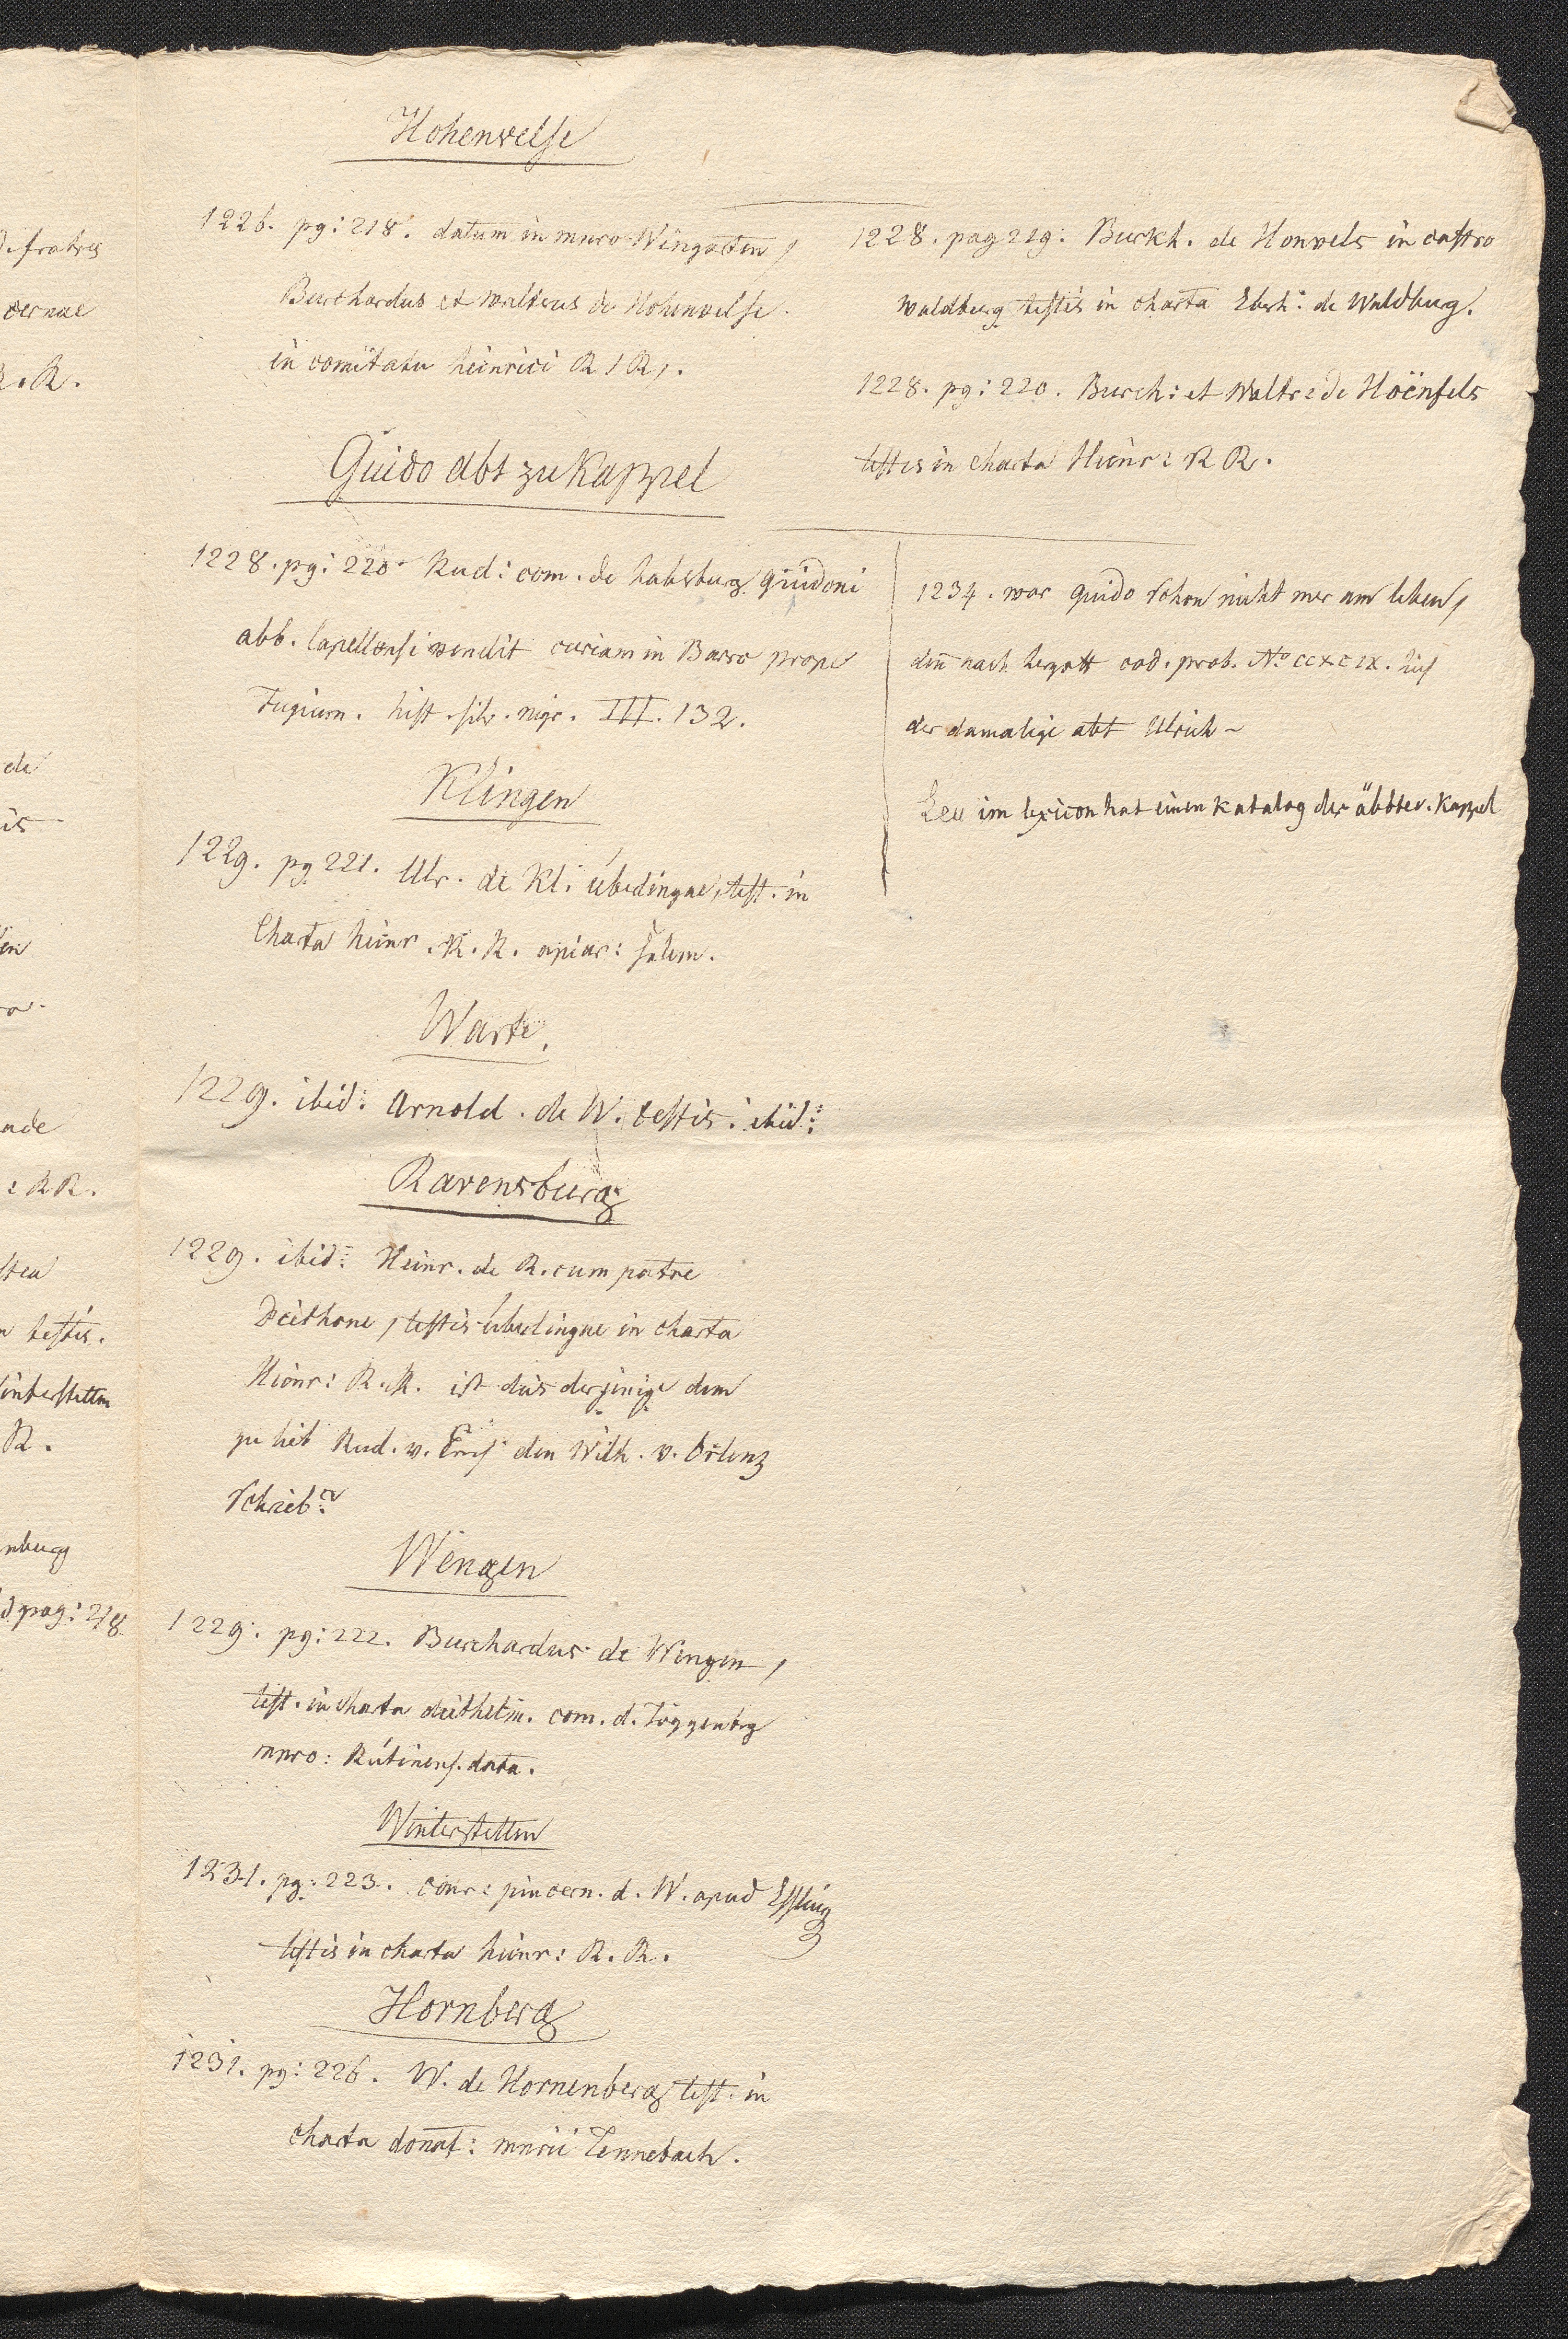 Hohenvelse
1226. pg: 218. datum in mnro Wingarten,
Burchardus et walterus de Hohenvelse.
in comitatu heinrici R / R /.
1228. pag 219: Burkh. de Honvels in castro
waldburg testis in charta Eberh: de Waldburg.
1228. pg: 220. Burch: et Waltr: de Hoënfels
testis in charta Heinr: R R.
Guido abt zu Kappel
1228. pg: 220. Rud: com. de habsburg guidoni
abb. Capellensi vendit curiam in Barro prope
Tugium. hist. silv. nigr. III. 132.
1234. war guido schon nicht mer am leben,
den̄ nach hergott cod. prob. No CCXCIX. hies
der damalige abt Ulrich ~
Leu im lexicon hat einen katalog der äbbte v. Kappel
Klingen
1229. pg 221. Ulr. de Kl. úbedingne, test. in
Charta heinr. R. R. apiar: Salem.
Warte.
1229. ibid: Arnold. de W. testis. ibid:
Ravensburg
1229. ibid: Heinr. de R. cum patre
Deithone, testis úbelingne in charta
Heinr: R. R. ist dies derjenige dem
zu lieb Rud. v. Ems den Wilh. v. Orlenz
schrieb?
Wengen
1229. pg: 222. Burchardus de Wengen,
test. in charta diethelm. com. d. Toggenbrg
mnro: Rútinens. data.
Winterstetten
1231. pg: 223. conr: pincern. d. W. apud Essling
testis in charta heinr: R. R.
Hornberg
1231. pg: 226. W. de Hornenberg test. in
charta donat: mnrii Tennebach.
fratres
R.
ade
: RR.
testis.
Winterstetten
R.
nburg
pag: 218.